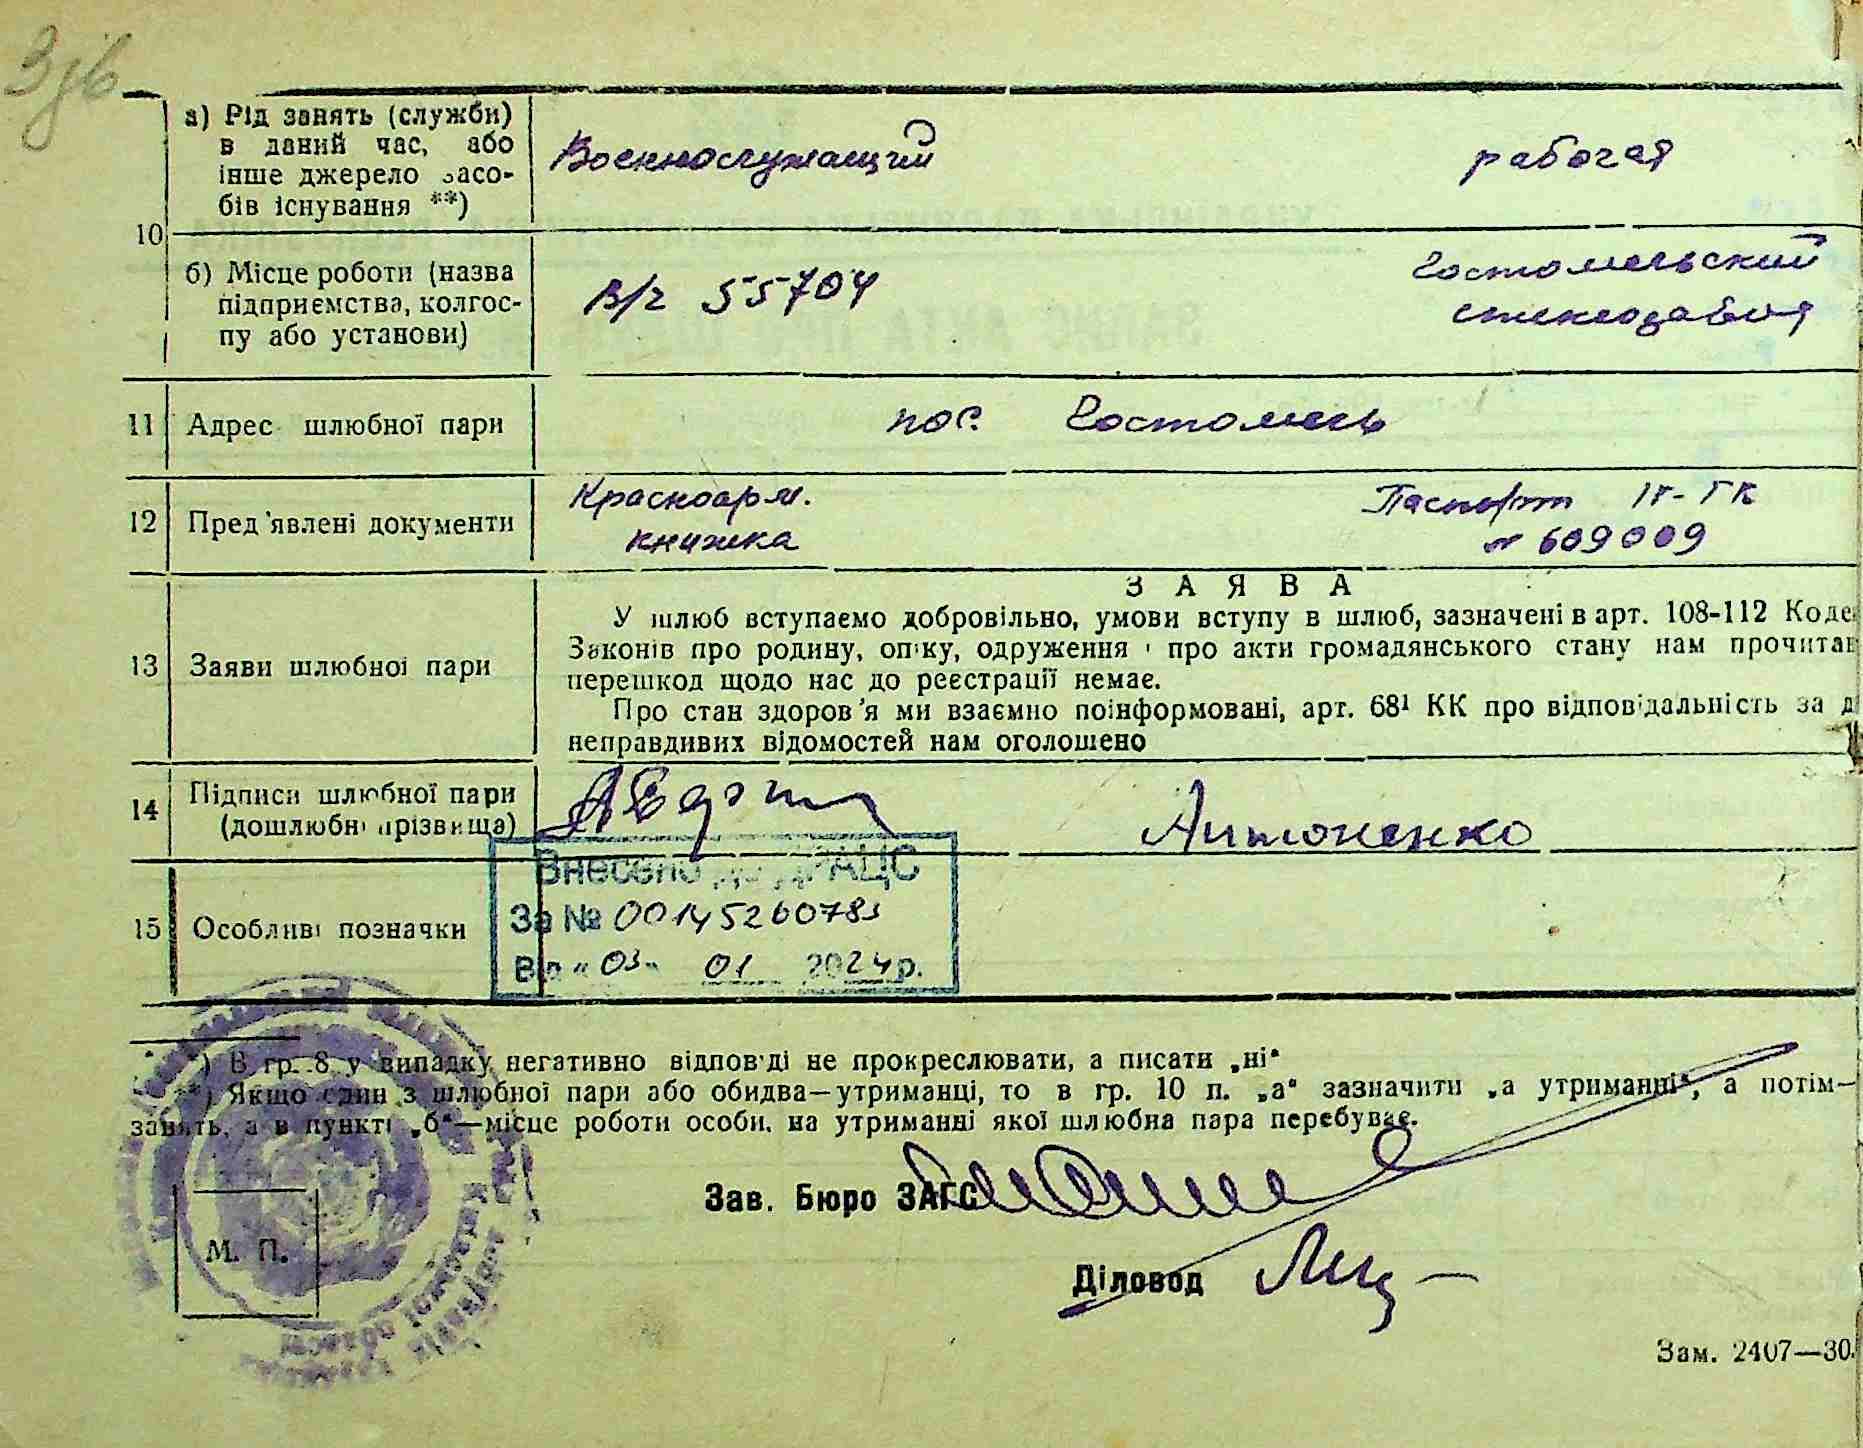 Зув
а) Рід занять (служби) в даний час, або інше джерело засобів існування **)
Военнослужащий рабочая
10
б) Місце роботи (назва підприємства, колгоспу або установи)
В/ч 55704 Гостомельский
стеклозавод
11 Адрес шлюбної пари пос. Гостомель
12 Пред'явлені документи
Красноарм. Паспорт IV-ГК
книжка № 609009
З А Я В А
13 Заяви шлюбної пари
У шлюб вступаємо добровільно, умови вступу в шлюб, зазначені в арт. 108-112 Коде
Законів про родину, опіку, одруження і про акти громадянського стану нам прочитан
перешкод щодо нас до реєстрації немає.
Про стан здоров'я ми взаємно поінформовані, арт. 68¹ КК про відповідальність за д
неправдивих відомостей нам оголошено
14 Підписи шлюбної пари
(дошлюбні прізвища)
Антоненко
Внесено до ДРАЦС
За № 00145260783
Від «03» 01 2024 р.
15 Особливі позначки
*) В гр. 8 у випадку негативно відповіді не прокреслювати, а писати „ні“
**) Якщо один з шлюбної пари або обидва—утриманці, то в гр. 10 п. „а“ зазначити „а утриманні“, а потім—
занять, а в пункті „б“—місце роботи особи, на утриманні якої шлюбна пара перебуває.
Зав. Бюро ЗАГС
М. П.
Діловод
Зам. 2407—30.